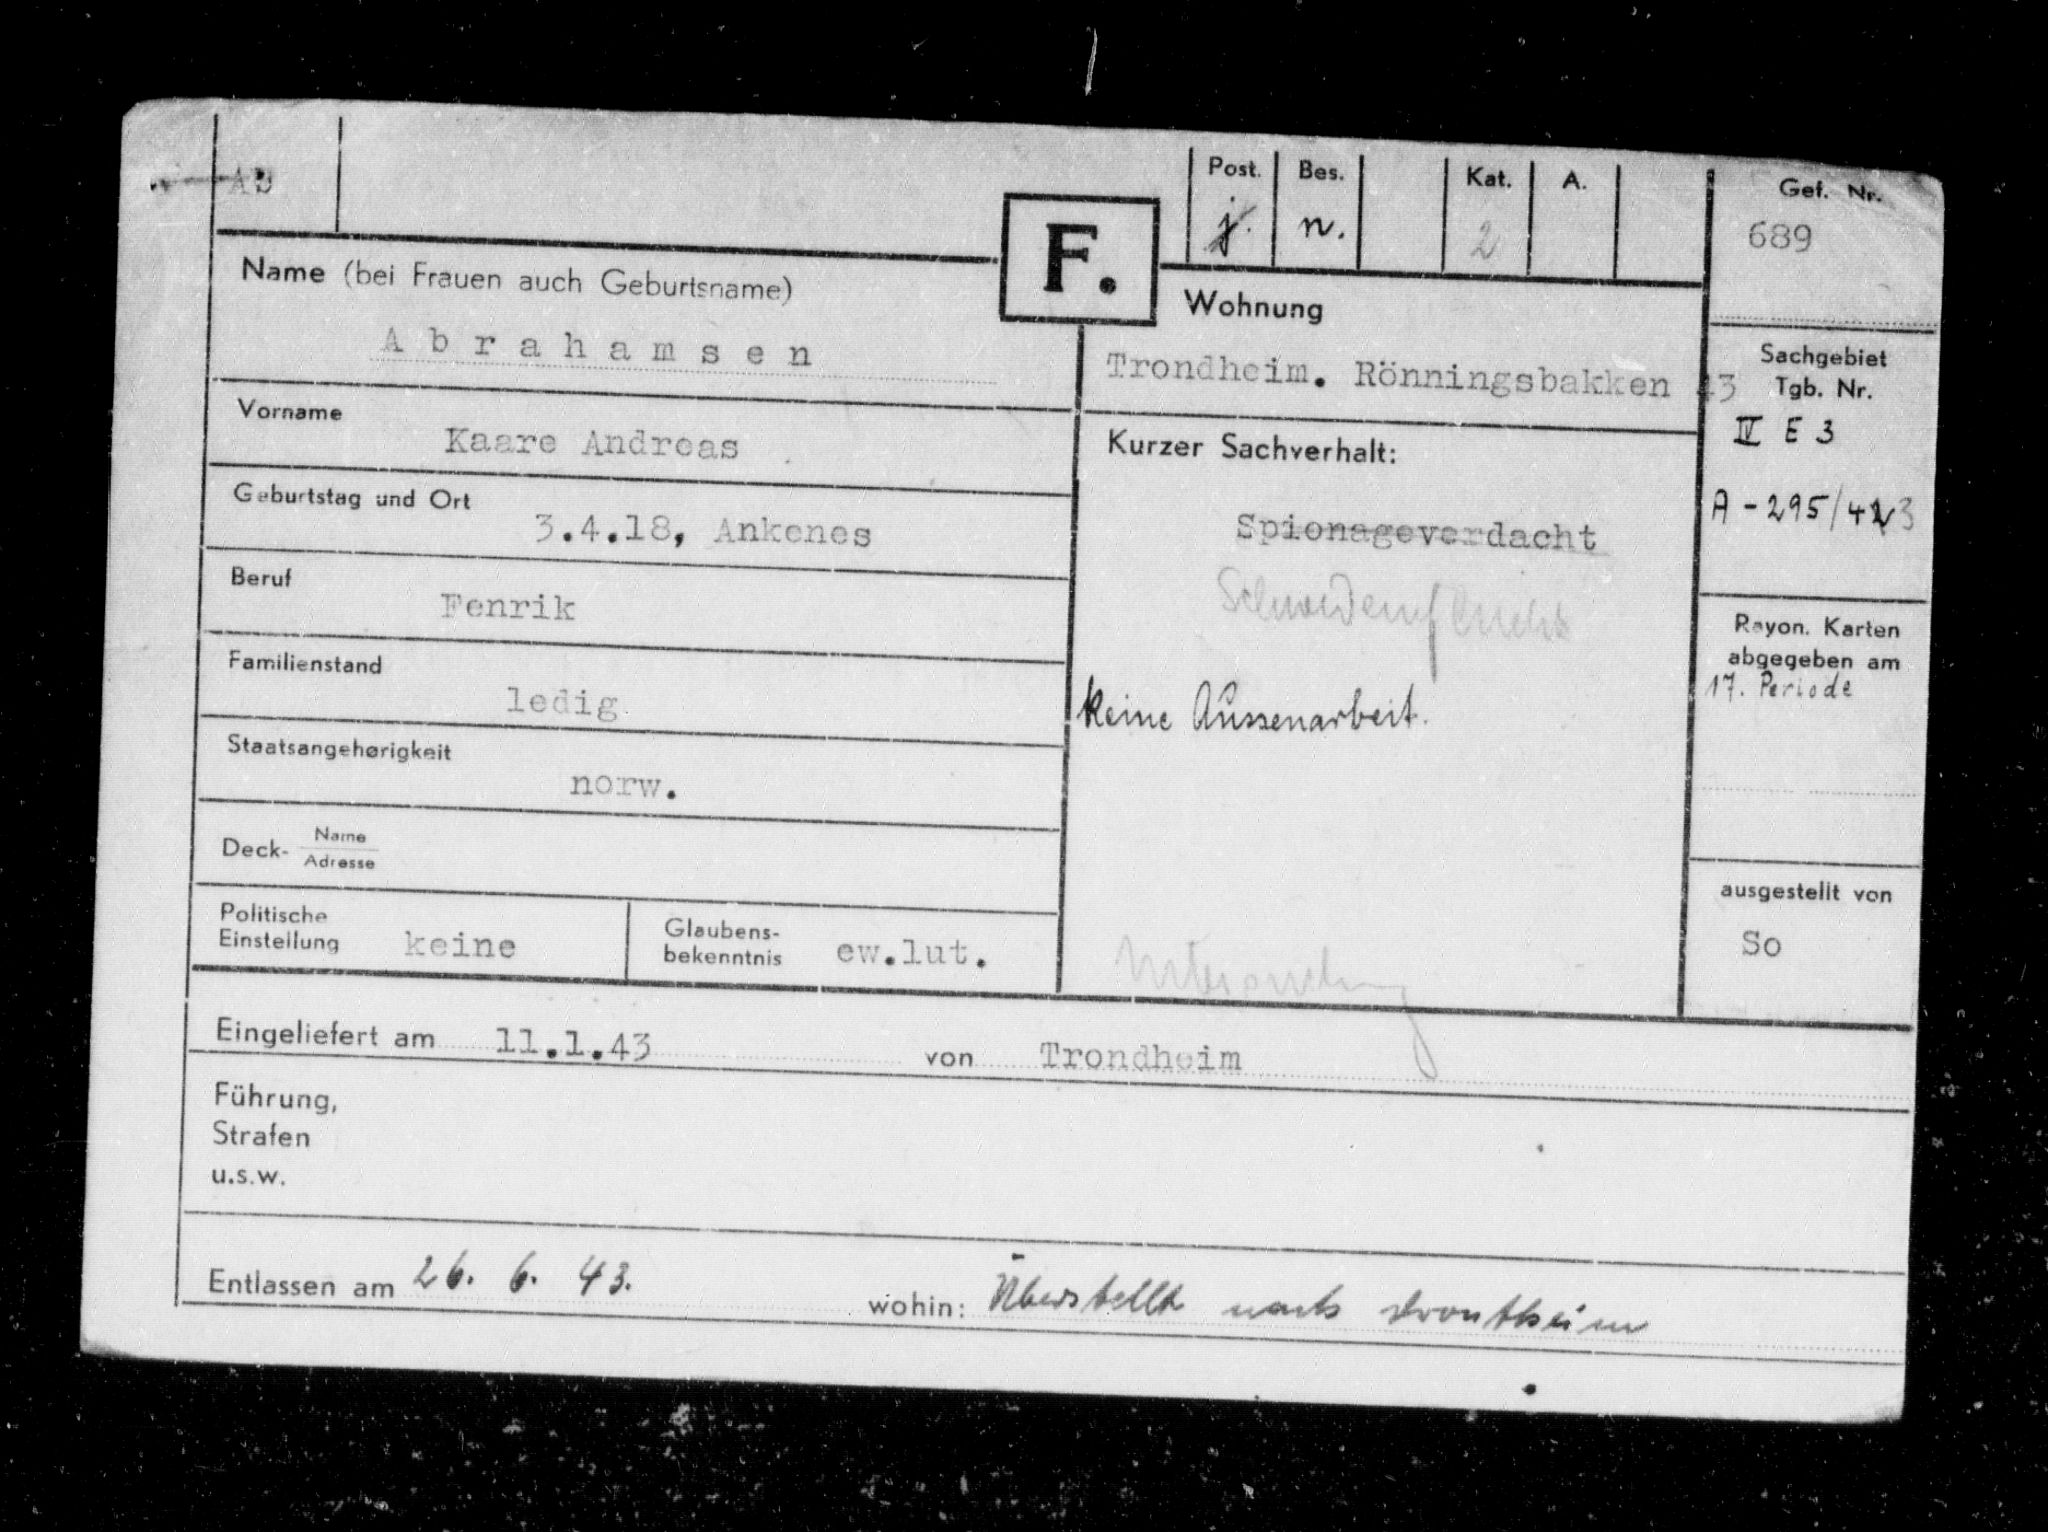 Ab
Post. Bes. Kat. A.
j. n. 2
Gef. Nr.
689
F.
Name (bei Frauen auch Geburtsname)
Abrahamsen
Vorname
Kaare Andreas
Geburtstag und Ort
3.4.18, Ankenes
Beruf
Fenrik
Familienstand
ledig
Staatsangehørigkeit
norw.
Deck- Name
Adresse
Politische
Einstellung keine
Glaubens-
bekenntnis ew.lut.
Wohnung
Trondheim. Rönningsbakken 43
Kurzer Sachverhalt:
Spionageverdacht
Schwedenflucht
keine Aussenarbeit.
Sachgebiet
Tgb. Nr.
IV E 3
A - 295/423
Rayon. Karten
abgegeben am
17. Periode
ausgestellt von
So
Eingeliefert am 11.1.43 von Trondheim
Führung,
Strafen
u.s.w.
Entlassen am 26. 6. 43. wohin: Überstellt nach Drontheim